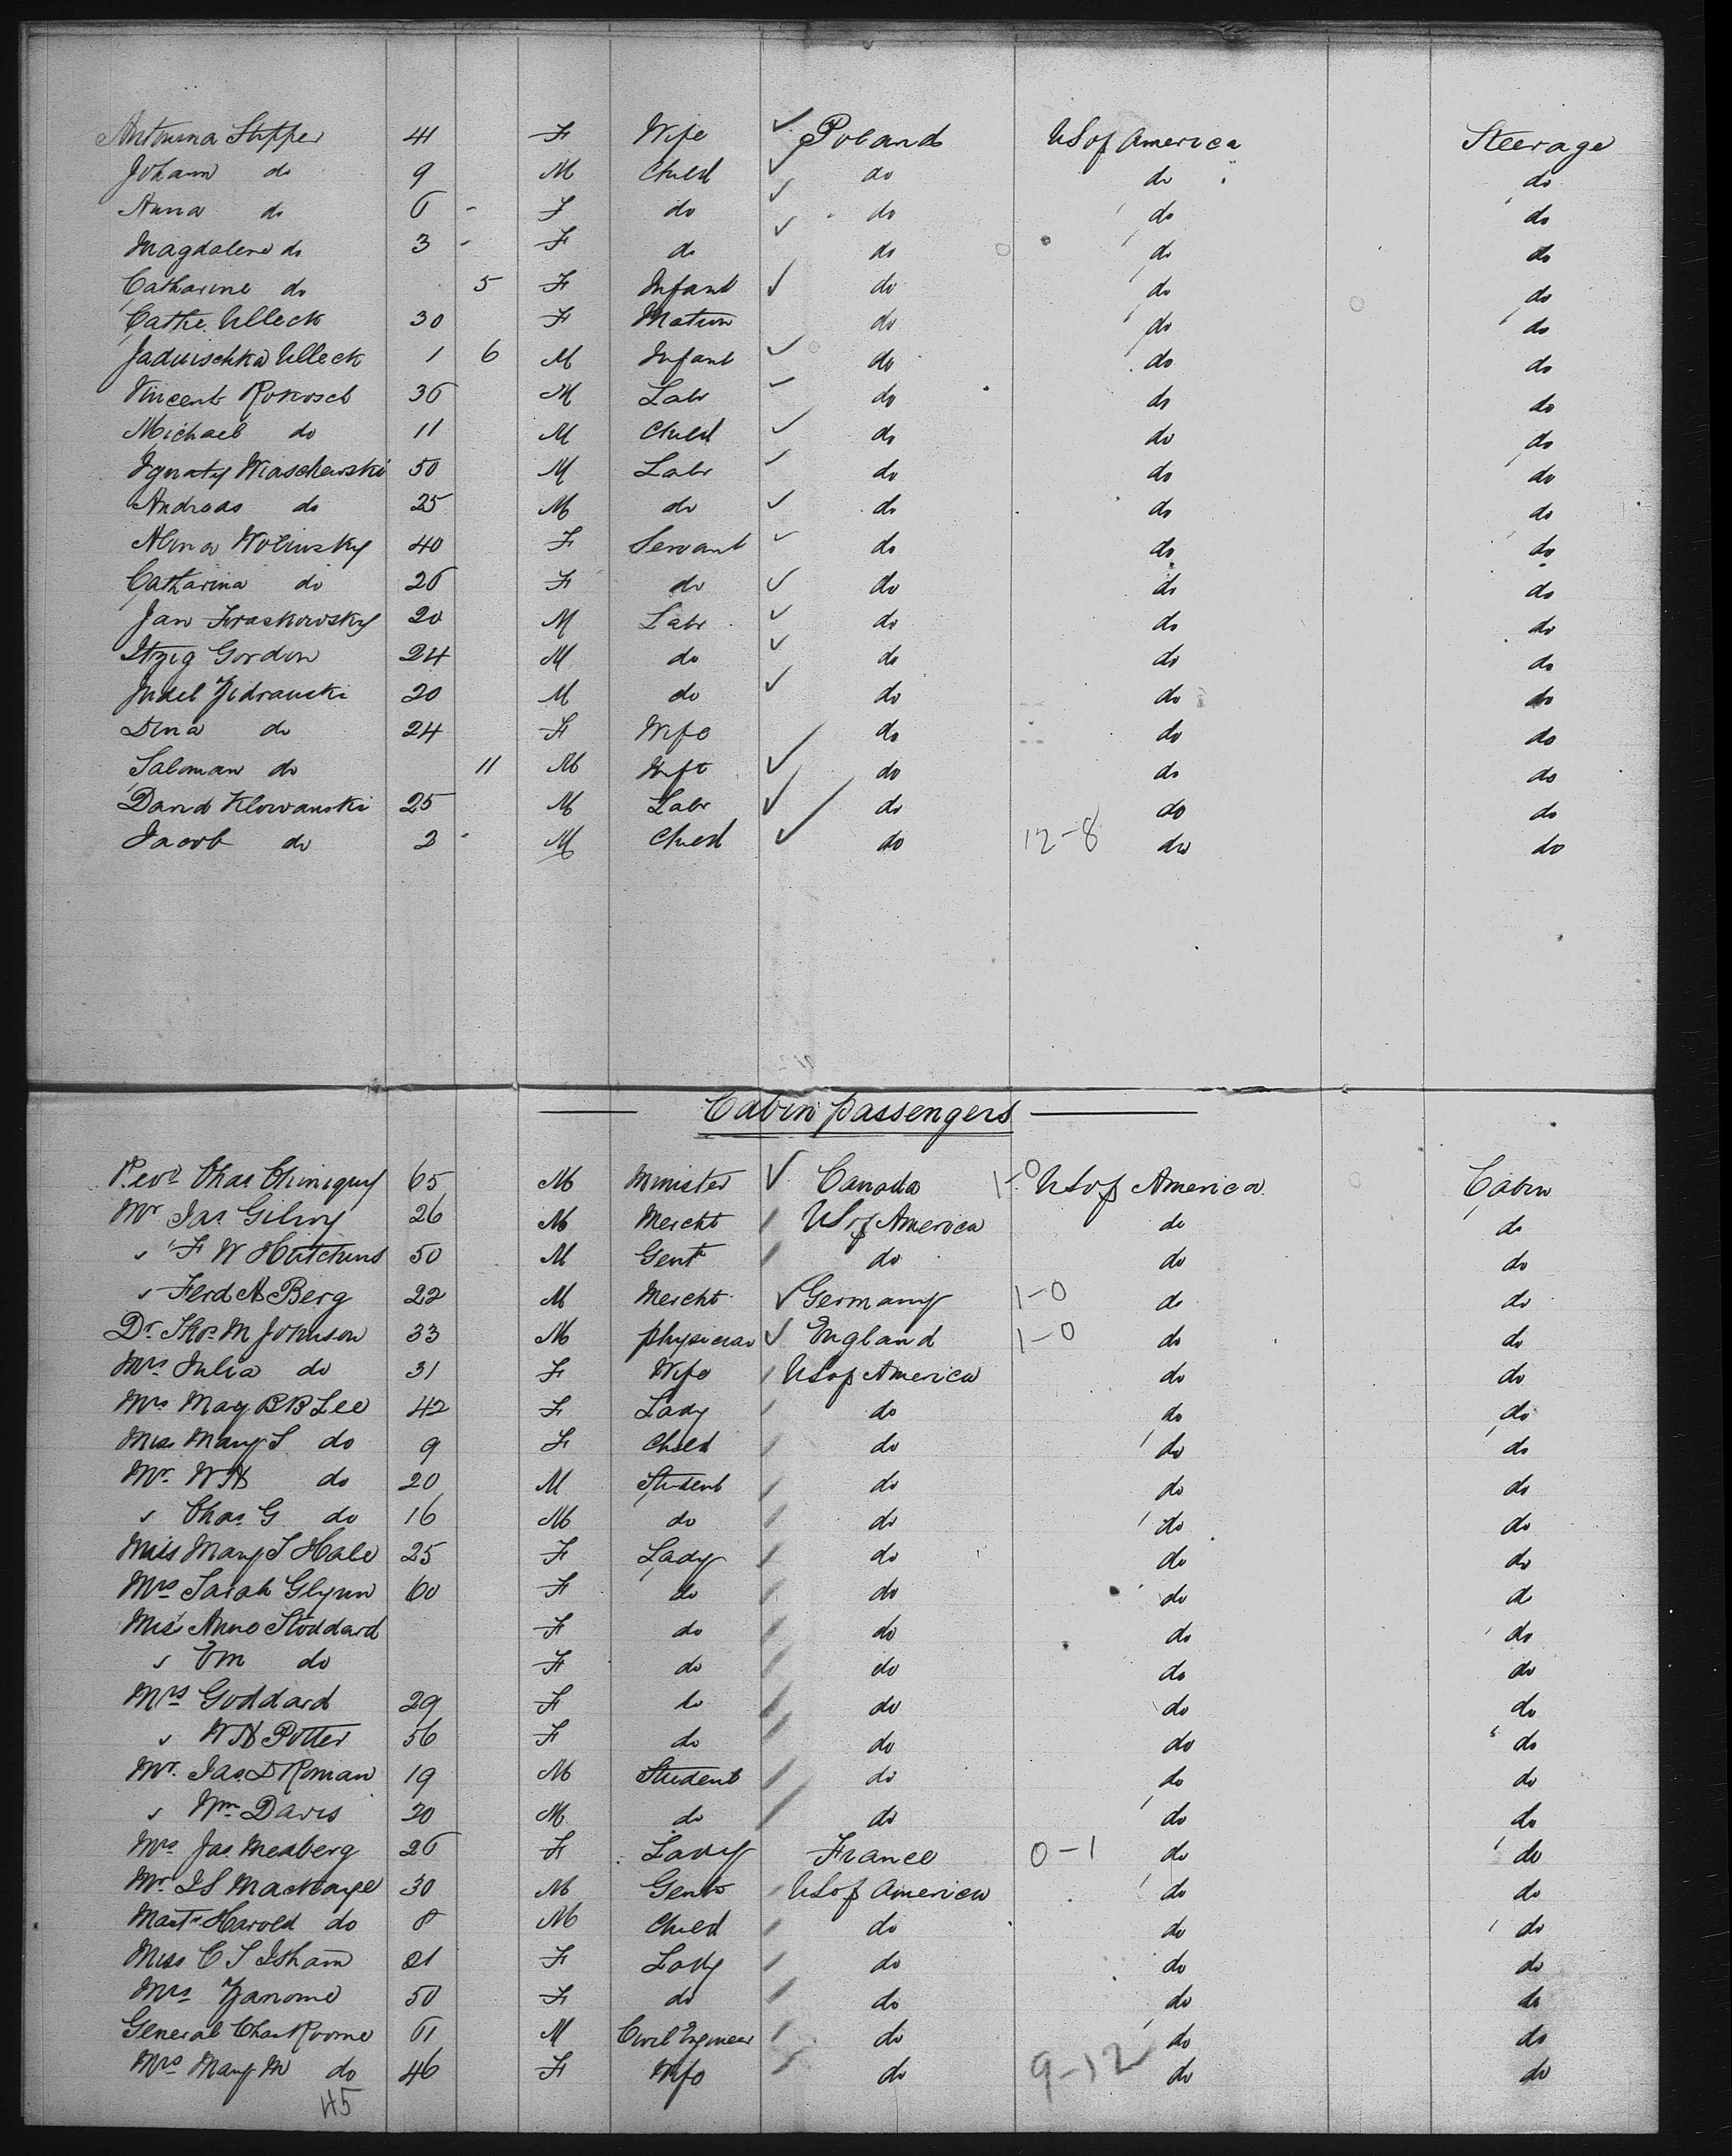 Antonina Stupper 41 F Wife Poland US of America Steerage
Johann do 9 M Child do do do
Anna do 6 - F do do do do
Magdalene do 3 - F do do do do
Catharine do 5 F Infant do do do
Cathe. Ulleck 30 F Matron do do do
Jaduischka Ulleck 1 6 M Infant do do do
Vincent Rokosch 36 M Labr do do do
Michael do 11 M Child do do do
Ignaty Wiaschewski 50 M Labr do do do
Andreas do 25 M do do do do
Anna Wolinsky 40 F Servant do do do
Catharina do 26 F do do do do
Jan Fraskowsky 20 M Labr do do do
Itzig Gordon 24 M do do do do
Judel Zidrauski 20 M do do do do
Dina do 24 F Wife do do do
Saloman do 11 M Inft do do do
David Klowanski 25 M Labr do do do
Jacob do 2 - M Child do 12-8 do do
Cabin passengers
Revd Chas Chiniquy 65 M Minister Canada 1-0 US of America Cabin
Mr Jas Gilroy 26 M Mercht US of America do do
" F W Hutchins 50 M Gent do do do
" Ferd A Berg 22 M Mercht Germany 1-0 do do
Dr. Thos M Johnson 33 M physician England 1-0 do do
Mrs Julia do 31 F Wife US of America do do
Mrs May B B Lee 42 F Lady do do do
Miss Mary S do 9 F Child do do do
Mr. W H do 20 M Student do do do
" Chas G do 16 M do do do do
Miss Mary S Hale 25 F Lady do do do
Mrs Sarah Glynn 60 F do do do do
Miss Anne Stoddard F do do do do
" Em do F do do do do
Mrs Goddard 29 F do do do do
" W H Potter 56 F do do do do
Mr. Jas. D Roman 19 M Student do do do
" Wm Davis 20 M do do do do
Mrs Jas Meaberg 26 F Lady France 0-1 do do
Mr. L S Mackaye 30 M Gent US of America do do
Mastr Harold do 8 M Child do do do
Miss C S Isham 21 F Lady do do do
Mrs Zanome 50 F do do do do
General Chas Roome 61 M Civil Engineer do do do
Mrs Mary M do 46 F Wife do 9-12 do do
45